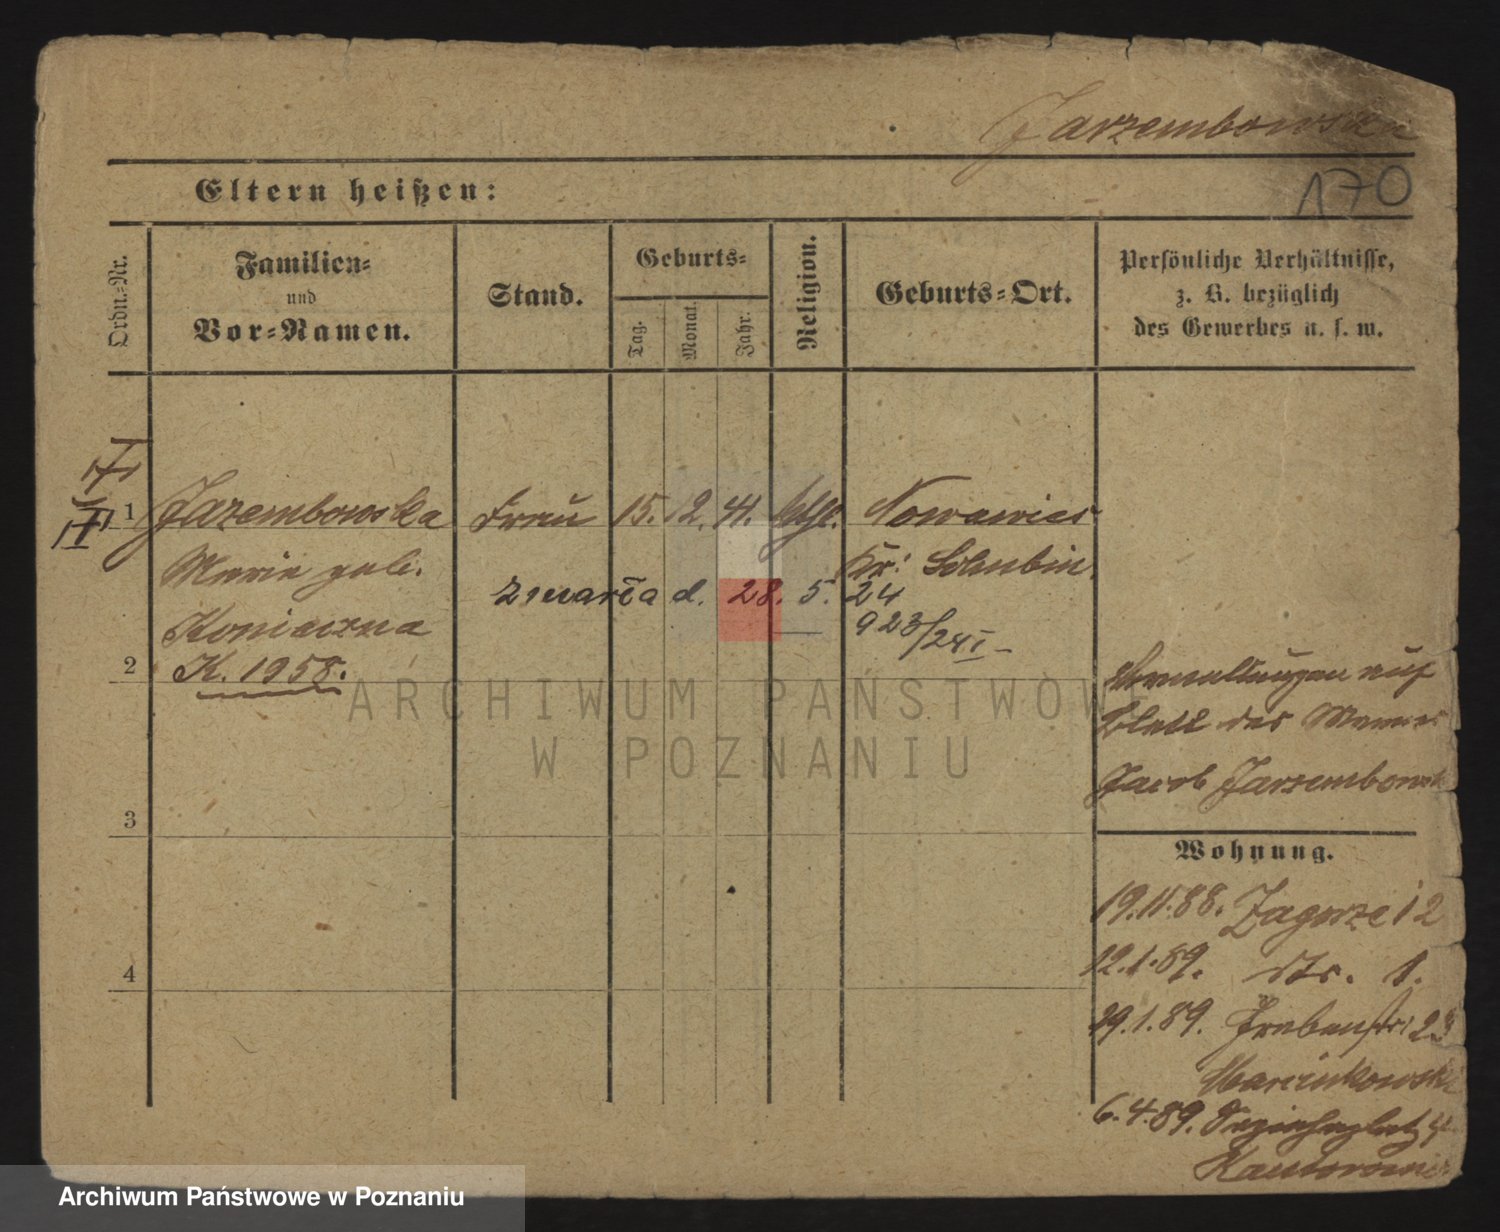 Jarzembowska
170
Eltern heißen:
Ordn.-Nr.
Familien-
und
Vor-Namen.
Stand.
Geburts-
Tag.
Monat.
Jahr.
Religion.
Geburts-Ort.
Persönliche Verhältnisse,
z. B. bezüglich
des Gewerbes u. s. w.
1 Jazembowska Frau 15. 12. 41. kthl. Nowawies
Marie geb. Kr: Schubin.
zmarła d. 28. 5. 24
Konieczna
923/24 I
2 K. 1958.
auf
Blatt des Mannes
Jacob Jarzembowsk
ARCHIWUM PAŃSTWOWE
W POZNANIU
3
Wohnung.
19.11.88. Zagorze 12
12.1.89. dto. 1.
4
29.1.89. 23
Marcinkowski
6.4.89. 4
Archiwum Państwowe w Poznaniu